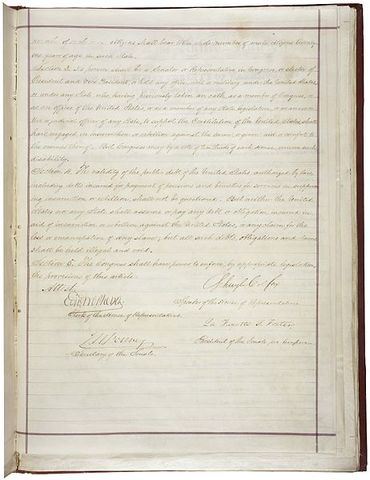 number of such male citizens shall bear to the whole number of male citizens twenty-
one years of age in such State.
Section 3. No person shall be a Senator or Representative in Congress, or elector of
President and Vice President, or hold any office, civil or military, under the United States,
or under any State, who, having previously taken an oath, as a member of Congress, or
as an officer of the United States, or as a member of any State legislature, or as an execu-
tive or judicial officer of any State, to support the Constitution of the United States, shall
have engaged in insurrection or rebellion against the same, or given aid or comfort to
the enemies thereof. But Congress may by a vote of two-thirds of each House, remove such
disability.
Section 4. The validity of the public debt of the United States, authorized by law,
including debts incurred for payment of pensions and bounties for services in suppress-
ing insurrection or rebellion, shall not be questioned. But neither the United
States nor any State shall assume or pay any debt or obligation incurred in
aid of insurrection or rebellion against the United States, or any claim for the
loss or emancipation of any slave; but all such debts, obligations and claims
shall be held illegal and void.
Section 5. The Congress shall have power to enforce, by appropriate legislation,
the provisions of this article.
Attest.
Schuyler Colfax
Edwd McPherson
Speaker of the House of Representatives.
Clerk of the House of Representatives.
La Fayette S. Foster
President of the Senate pro tempore.
Secretary of the Senate.